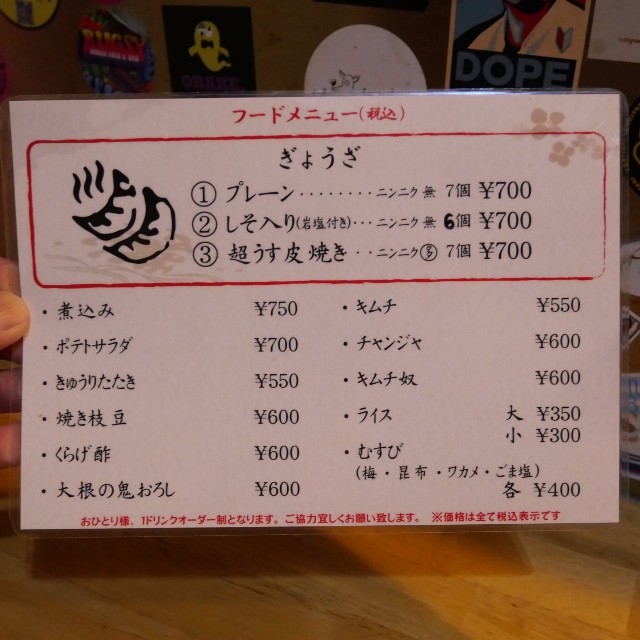 BUGSY
OBAKE
DOPE
フードメニュー(税込)
ぎょうざ
① プレーン........ニンニク 無 7個 ¥700
② しそ入り(岩塩付き)...ニンニク 無 6個 ¥700
③ 超うす皮焼き...ニンニク 多 7個 ¥700
・煮込み ¥750
・ポテトサラダ ¥700
・きゅうりたたき ¥550
・焼き枝豆 ¥600
・くらげ酢 ¥600
・大根の鬼おろし ¥600
・キムチ ¥550
・チャンジャ ¥600
・キムチ奴 ¥600
・ライス 大 ¥350
小 ¥300
・むすび
(梅・昆布・ワカメ・ごま塩)
各 ¥400
おひとり様、1ドリンクオーダー制となります。ご協力宜しくお願い致します。 ※価格は全て税込表示です